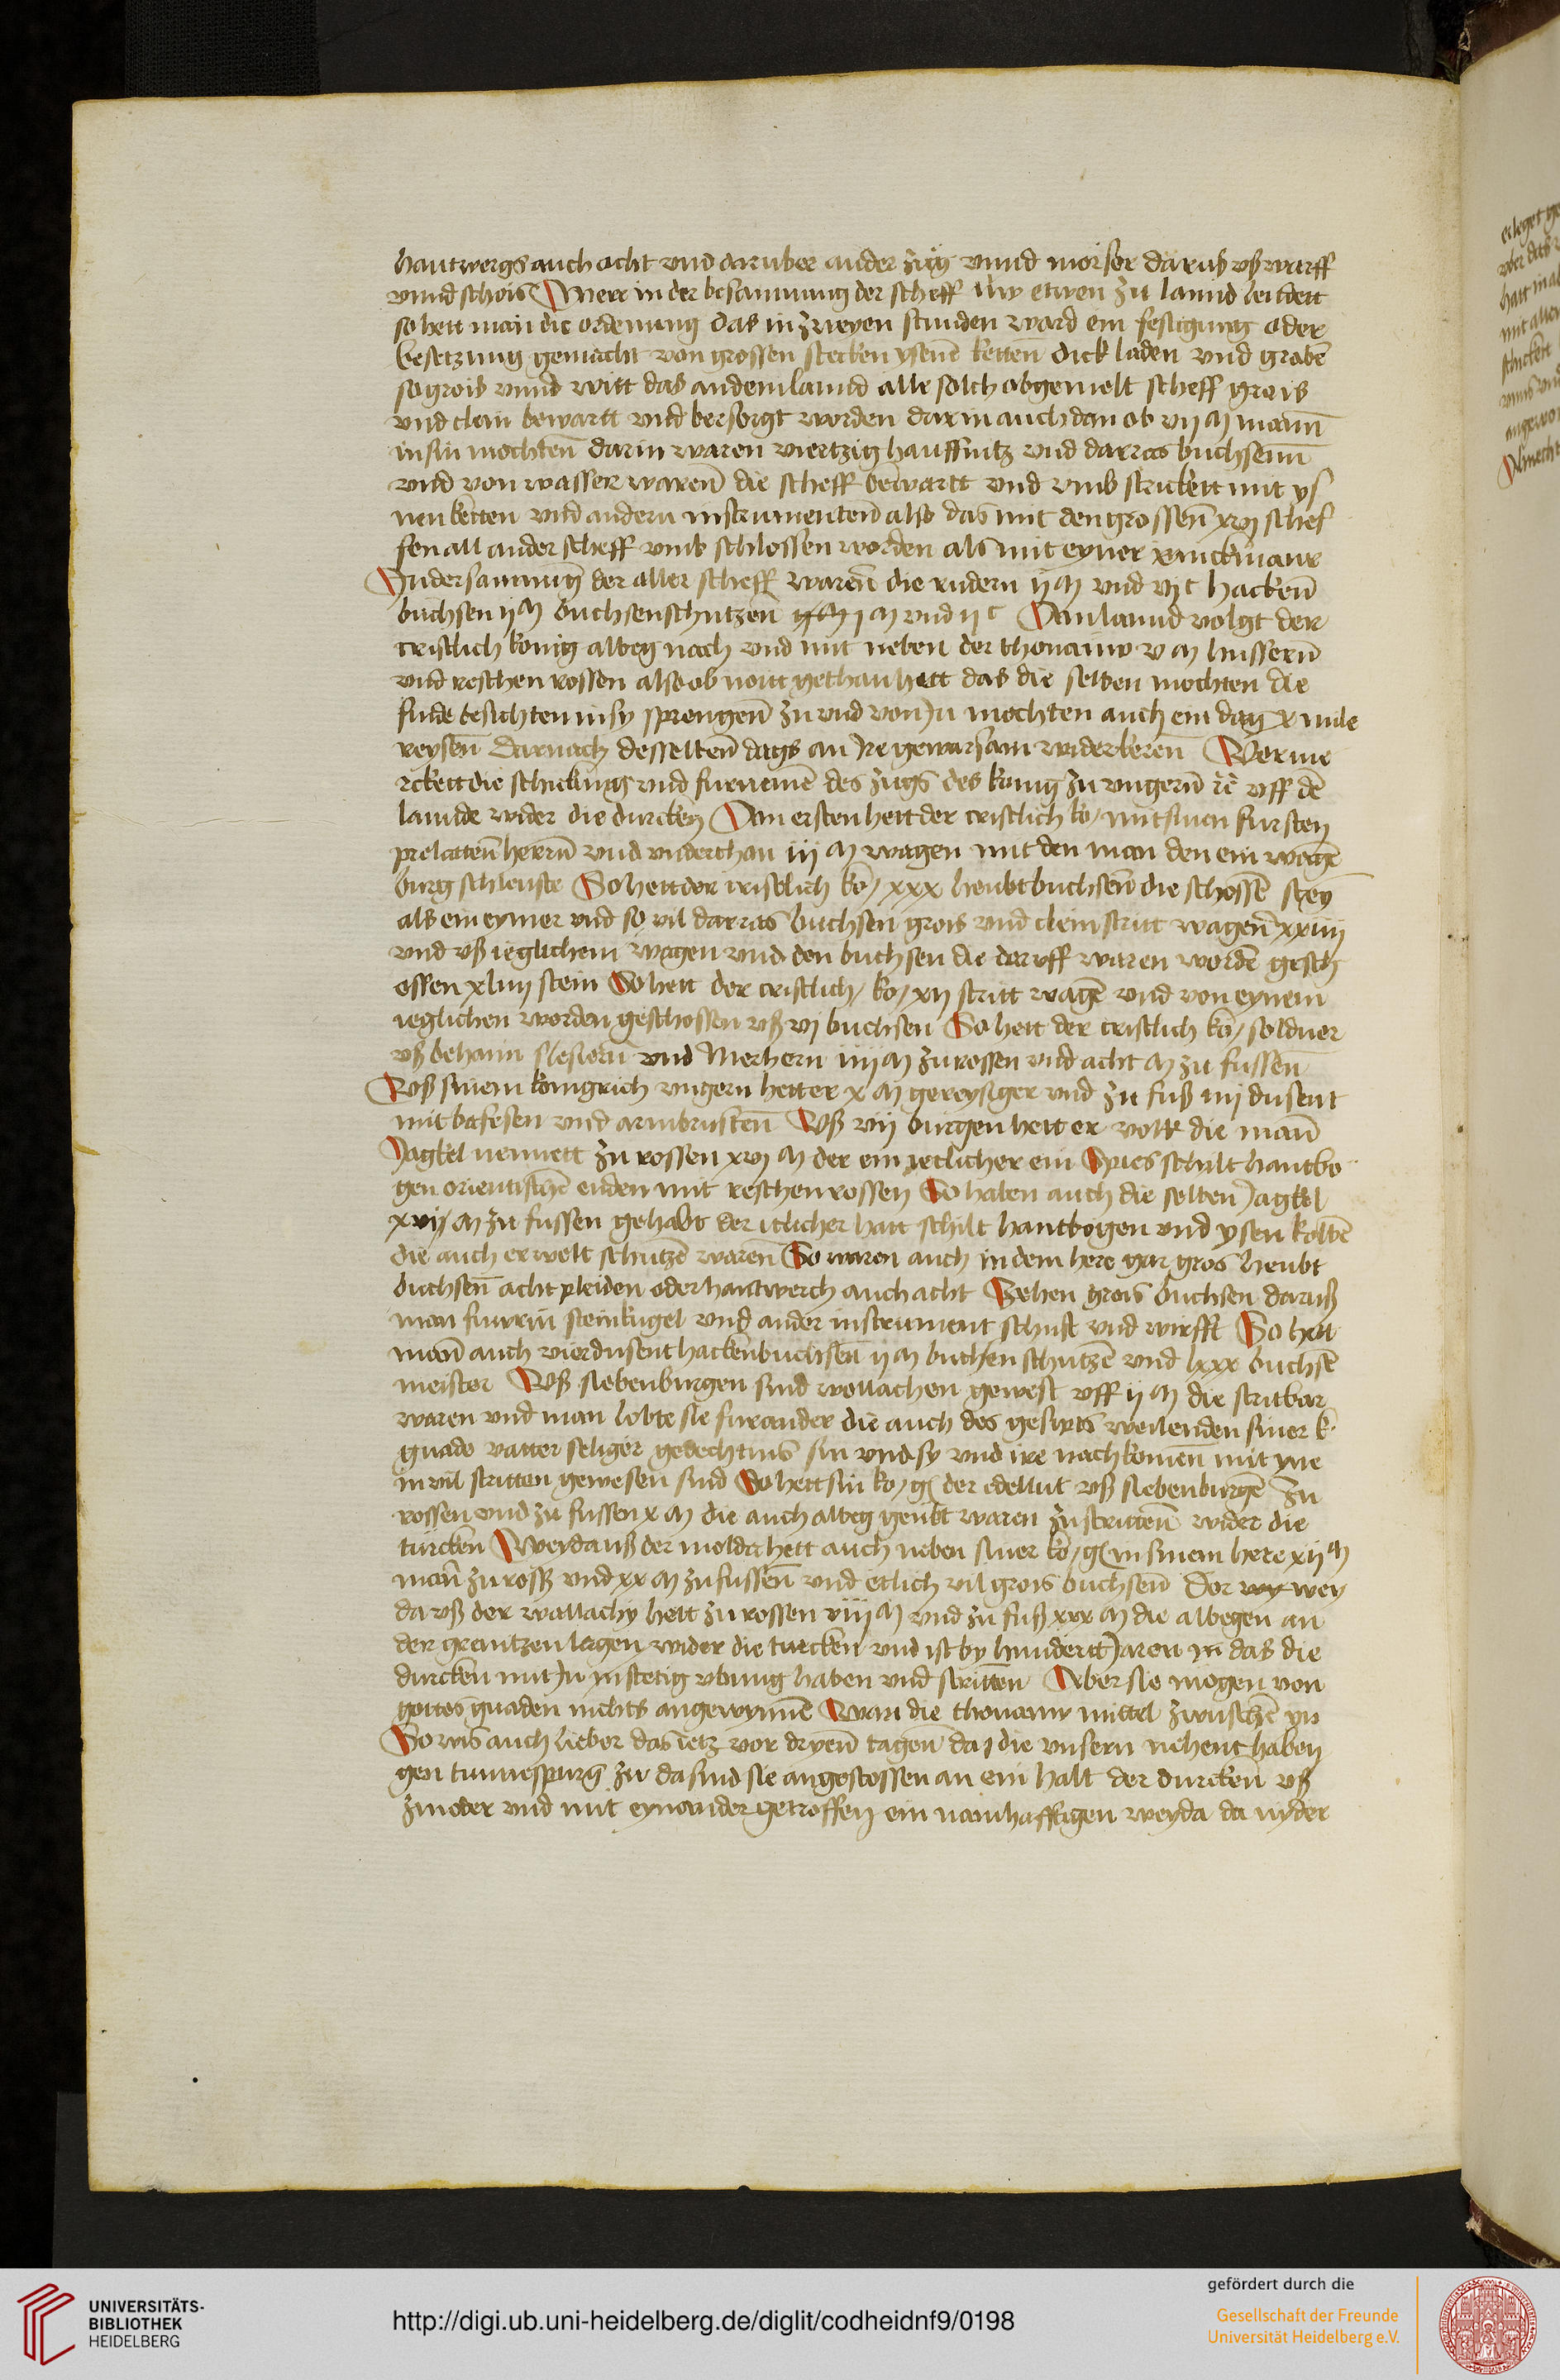 hantwergs auch acht vnd daruber ander zug vnnd morser darus vß wurff
vnnd schois Merr in der besamnung der scheff uw etwen zu lannd leudett
so hett man die ordenung das in zweyen stunden ward ein festigung oder
besetzung gemacht von grossen stecken ysene ketten dick laden vnd graben
so grois vnnd witt das an dem lannd alle solch obgemelt scheff grois
vnd clein bewartt vnd versorgt worden darin auch dan ob vij M mann
in sin mochten darin waren viertzig hauffnitz vnd darras buchsenn
vnd von wasser waren die scheff bewartt vnd vmb strickett mit ys
nen ketten vnd andern instrumenten also das mit den grossen xvj schef
fen all ander scheff vmb schlossen worden als mit eyner rinckmaur
In der samnung der aller scheff waren die rudern ij M vnd vj c hacken
buchsen ij M buchsenschutzen j M vnd ij c Van lannd volgt der
cristlich konig albeg nach vnd mit neben der thonauw v M hussern
vnd reschen rossen also ob nott gethan hett das die selben mochten die
finde besichten in sy sprengen zu vnd von jn mochten auch ein dag x mile
reysen darnach desselben dags an jre gewarsam widerkeren Verme
rckett die schickung vnd furnemen des zugs des konig zu vngern re vff de
lannde wider die durcken Von ersten hett der cristlich ko / mit sinen fursten
prelatten herrn vnd vnderthan iij M wagen mit den man den ein wagen
burg schleuste So hett der cristlich ko / xxx heubtbuchsen die schossen stey
als ein eymer vnd so vil darras buchsen grois vnd clein stritt wagen xxiiij
vnd vß ieglichem wagen vnd den buchsen die daruff waren worden gesch
ossen xliiij stein So hett der cristlich / ko / xij stritt wagen vnd von eynem
ieglichen worden geschossen vß vj buchsen So hett der cristlich ko / soldner
vß behaim slesiern vnd Merhern iiij M zu rossen vnd acht M zu fussen
Vß sinem konigrich vngern hett er x M gereysiger vnd zu fuß iiij dusent
mit bafesen vnd armbrusten Vß vij burgen hett er volk die man
Jagkel nennett zu rossen xvj M der ein jetlicher ein Spies schilt hantbo
gen orientischen enden mit reschen rossen So haben auch die selben Jagkel
xvij M zu fussen gehabt der itlicher hatt schilt hantbogen vnd ysen kolben
die auch erwelt schutzen waren So waren auch in dem here gar gros heubt
buchsen acht pleiden oder hantwerch auch acht Zehen grois buchsen daruß
man fuwrin steinkugel vnd ander instrument schust vnd wirfft So hett
man auch vierdusent hackenbuchsen ij M buchsen schutzen vnd lxxx buchsen
meister Vß siebenburgen sind wollachen gewest vff ij M die stritbar
waren vnd man lobte sie fur ander die auch des geslechts weilenden siner k
gnade vatter seliger gedechtnus sin vnd sy vnd ire nachkomen mit yne
in vil stritten gewesen sind So hett sin ko / g der edellut vß siebenburgen zu
rossen vnd zu fussen x M die auch albeg geubt waren zu stritten wider die
turcken Weyda uß der molda hett auch neben siner ko / g in sinem here xij M
man zu ross vnd xx M zu fussen vnd etlich vil grois buchsen Der wey
da vß der wallachy hett zu rossen viij M vnd zu fuß xxx M die albegen an
der grentzen lagen wider die turcken vnd ist by hundertt jaren in das die
durcken mit jn in stetig vbung haben vnd stritten Aber sie mogen von
gottes gnaden nichts angewynnen Wan die thonauw mittel zwuschen yn
So wis auch lieber das ietz vor dryen tagen da die vnsern nehent haben
gen tunnespurg zu da sind sie angestossen an ein halt der durcken vß
zinoder vnd mit eynander getroffen ein namhafftigen weyda da nyder
UNIVERSITÄTS-
BIBLIOTHEK
HEIDELBERG
http://digi.ub.uni-heidelberg.de/diglit/codheidnf9/0198
gefördert durch die
Gesellschaft der Freunde
Universität Heidelberg e.V.